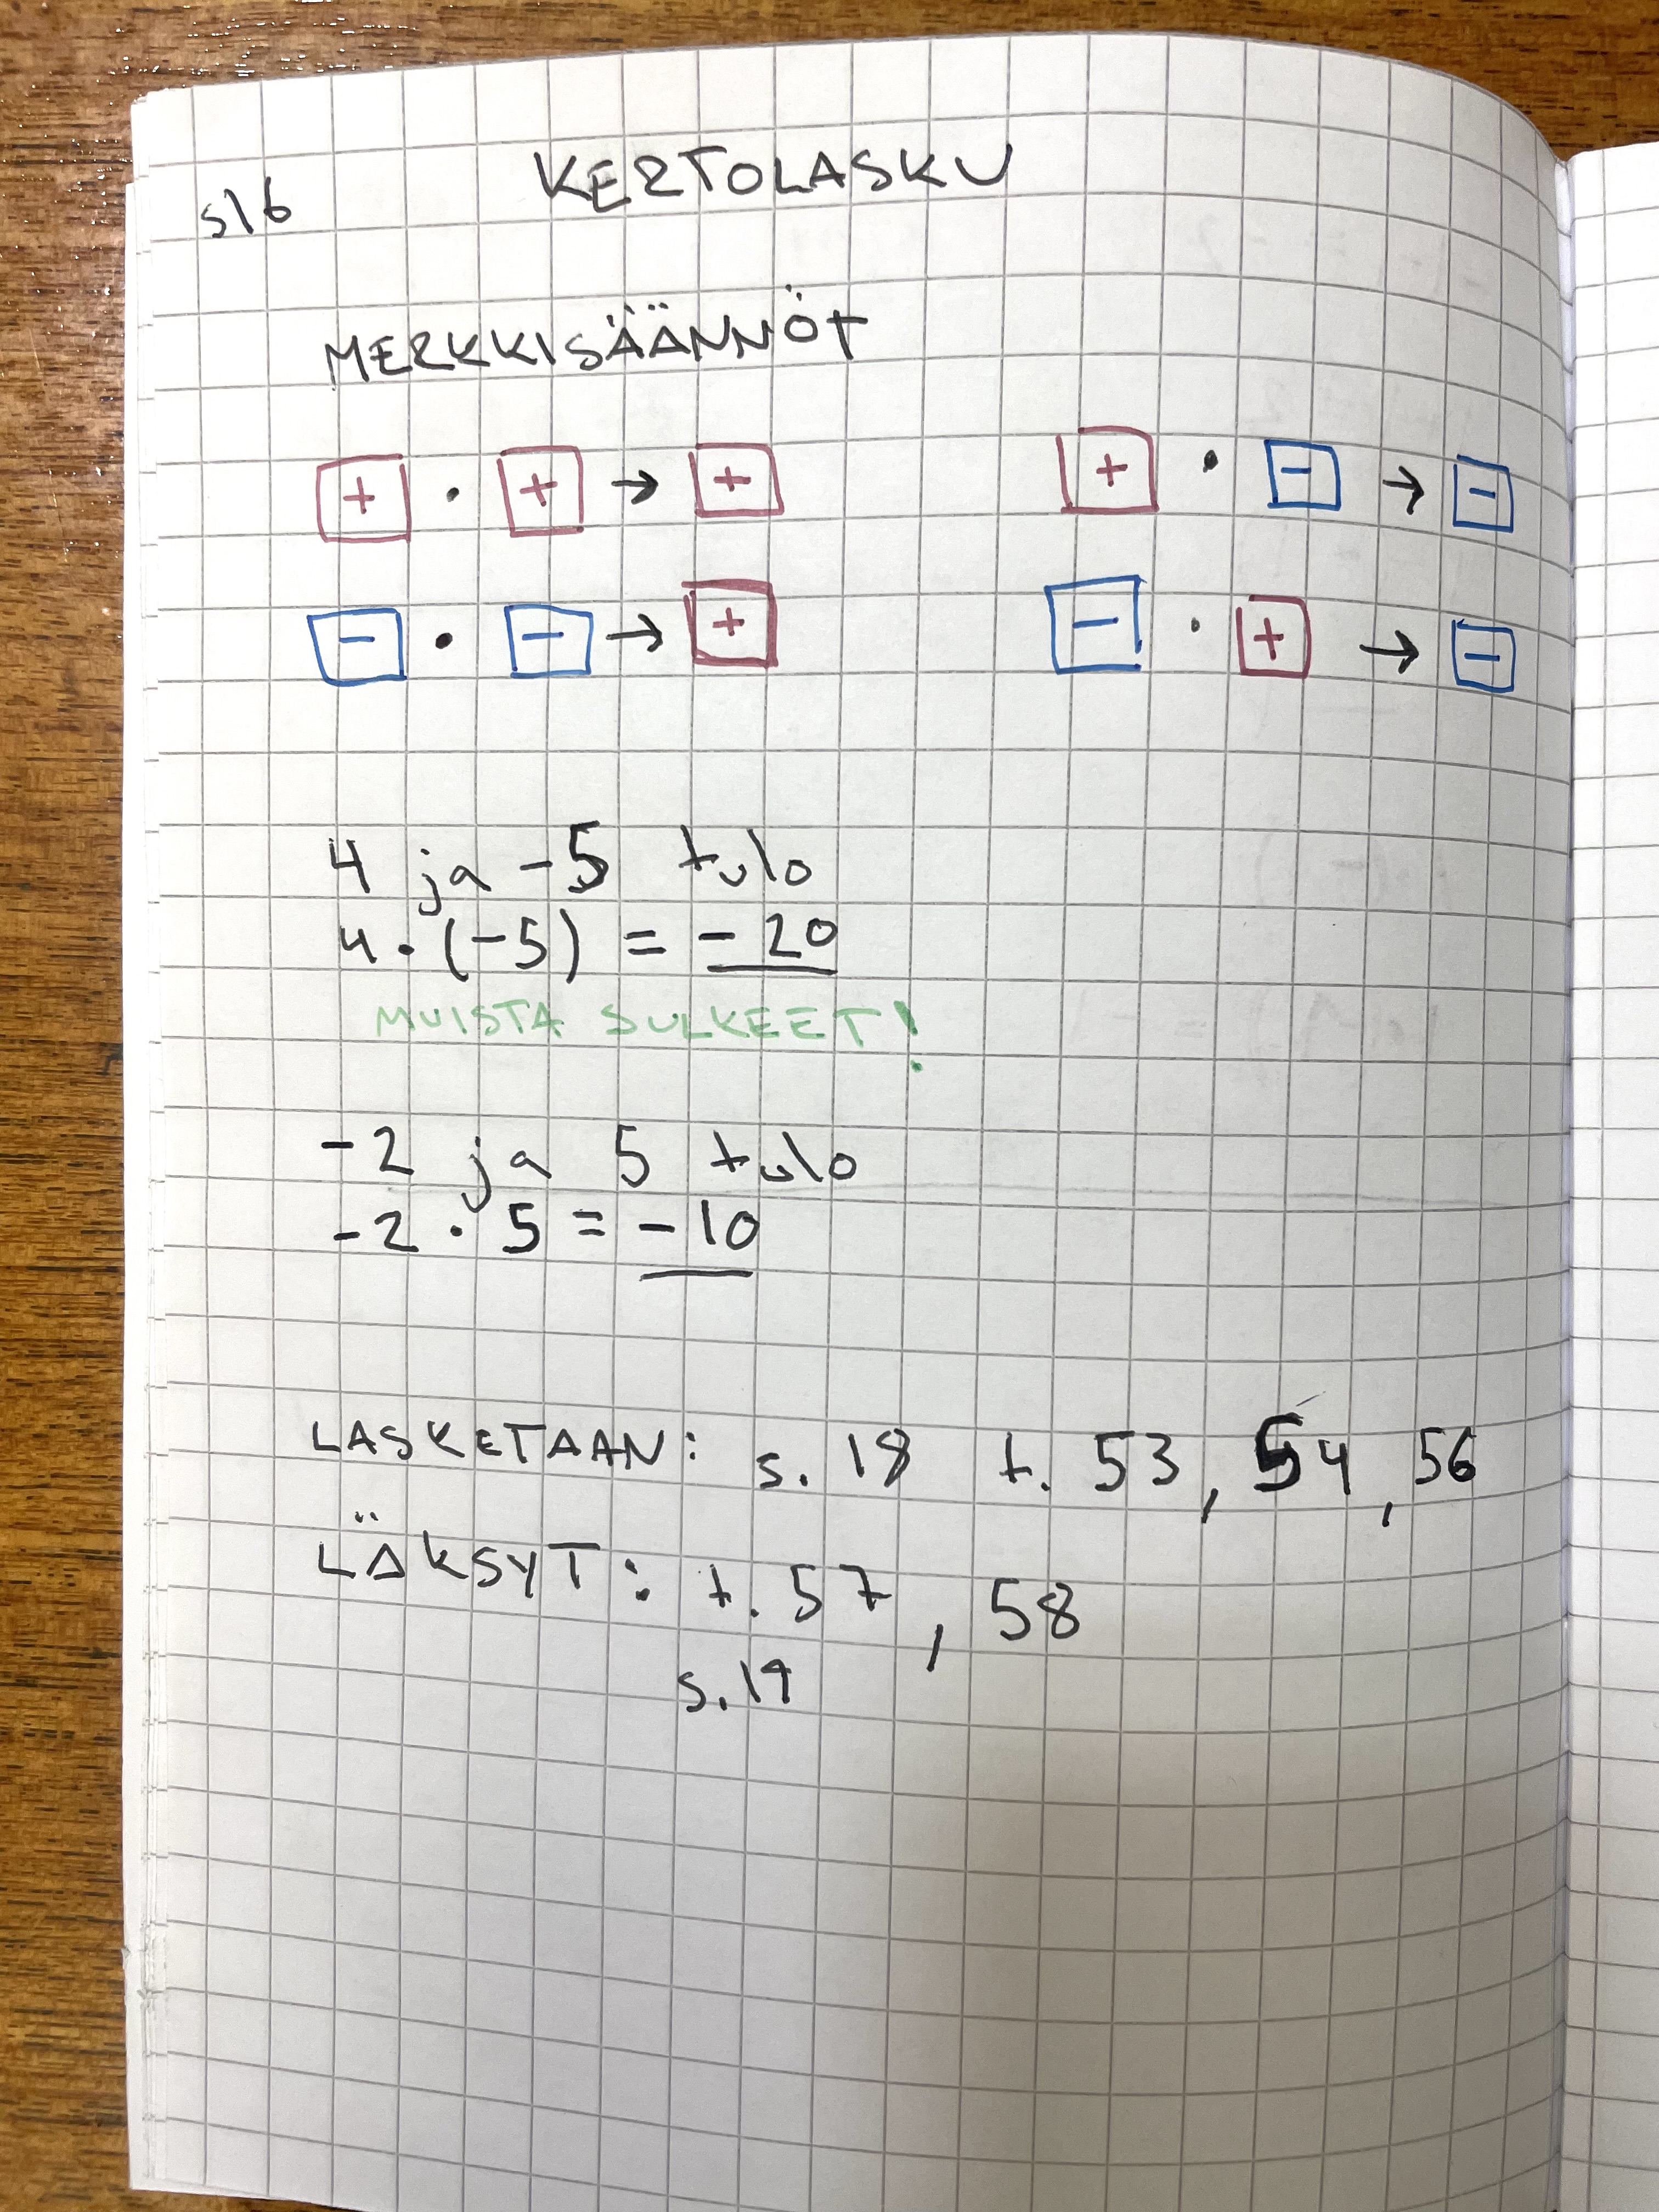 KERTOLASKU
s16
MERKKISÄÄNNÖT
+ · + → + + · - → -
- · - → + - · + → -
4 ja -5 tulo
4 · (-5) = -20
MUISTA SULKEET!
-2 ja 5 tulo
-2 · 5 = -10
LASKETAAN: s. 18 t. 53, 54, 56
LÄKSYT: t. 57, 58
s. 19